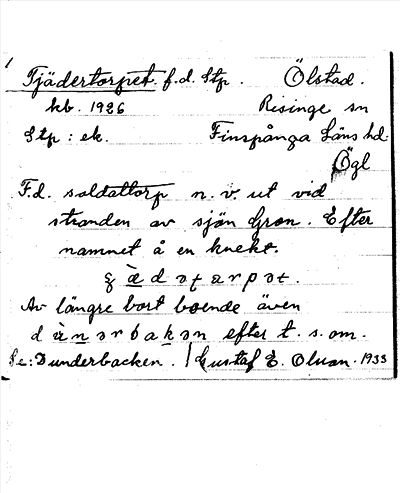 Tjädertorpet. f.d. Stp. Ölstad.
kb. 1936 Risinge sn
Stp : ek. Finspånga läns hd.
Ögl
F.d. soldattorp n.v. ut vid
stranden av sjön Gron. Efter
namnet å en knekt.
Av längre bort boende även
dùnərbakən efter t. s. om.
Se: Dunderbacken. / Gustaf E. Olsson. 1933